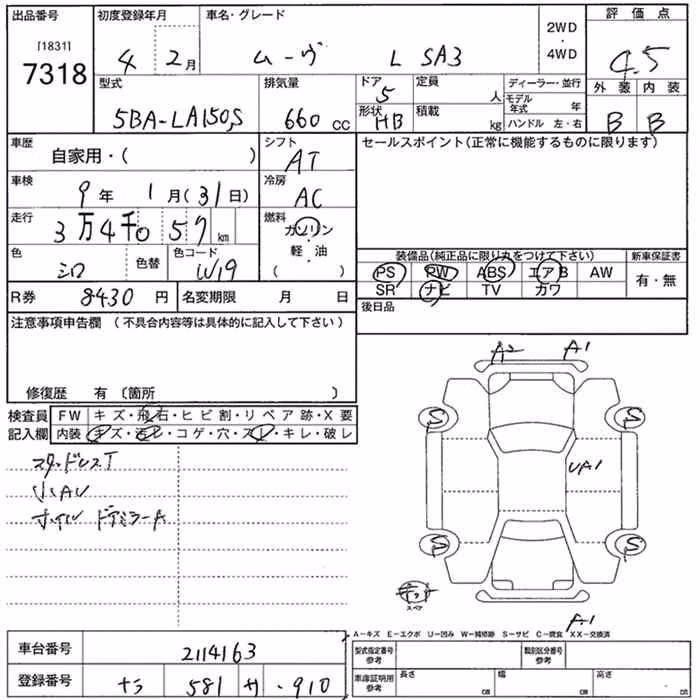 出品番号 [1831] 7318
初度登録年月 4 2月
車名・グレード ムーヴ L SA3
2WD・4WD
評価点 4.5
型式 5BA-LA150S
排気量 660 CC
ドア 5
形状 HB
定員 人
積載 kg
ディーラー・並行
モデル年式 年
ハンドル 左・右
外装 B
内装 B
車歴 自家用・( )
シフト AT
セールスポイント(正常に機能するものに限ります)
車検 9年 1月(31日)
冷房 AC
走行 3万4千057km
燃料 ガソリン・軽油 ( )
色 シロ
色替
色コード W19
装備品(純正品に限り丸をつけて下さい)
PS PW ABS エアB AW
SR ナビ TV カワ
新車保証書 有・無
R券 8430円
名変期限 月 日
後日品
注意事項申告欄 (不具合内容等は具体的に記入して下さい)
修復歴 有 〔箇所 〕
検査員記入欄
FW キズ・飛石・ヒビ割・リペア跡・X要
内装 キズ・汚レ・コゲ・穴・スレ・キレ・破レ
A2 A1
S S
UA1
S S
スペア
A1
A-キズ E-エクボ U-凹み W-補修跡 S-サビ C-腐食 XX-交換済
車台番号 2114163
登録番号 ナラ 581 サ ・910
型式指定番号 参考
類別区分番号 参考
車庫証明用 参考 長さ cm 幅 cm 高さ cm